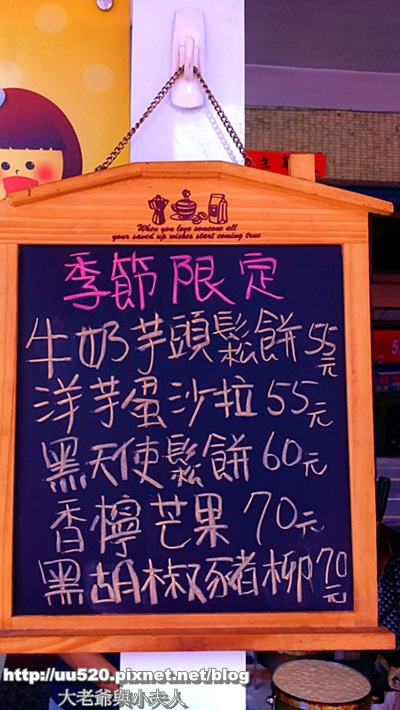 When you love someone all
your saved up wishes start coming true
季節限定
牛奶芋頭鬆餅55元
洋芋蛋沙拉55元
黑天使鬆餅60元
香檸芒果70元
黑胡椒豬柳70元
http://uu520.pixnet.net/blog
大老爺與小夫人